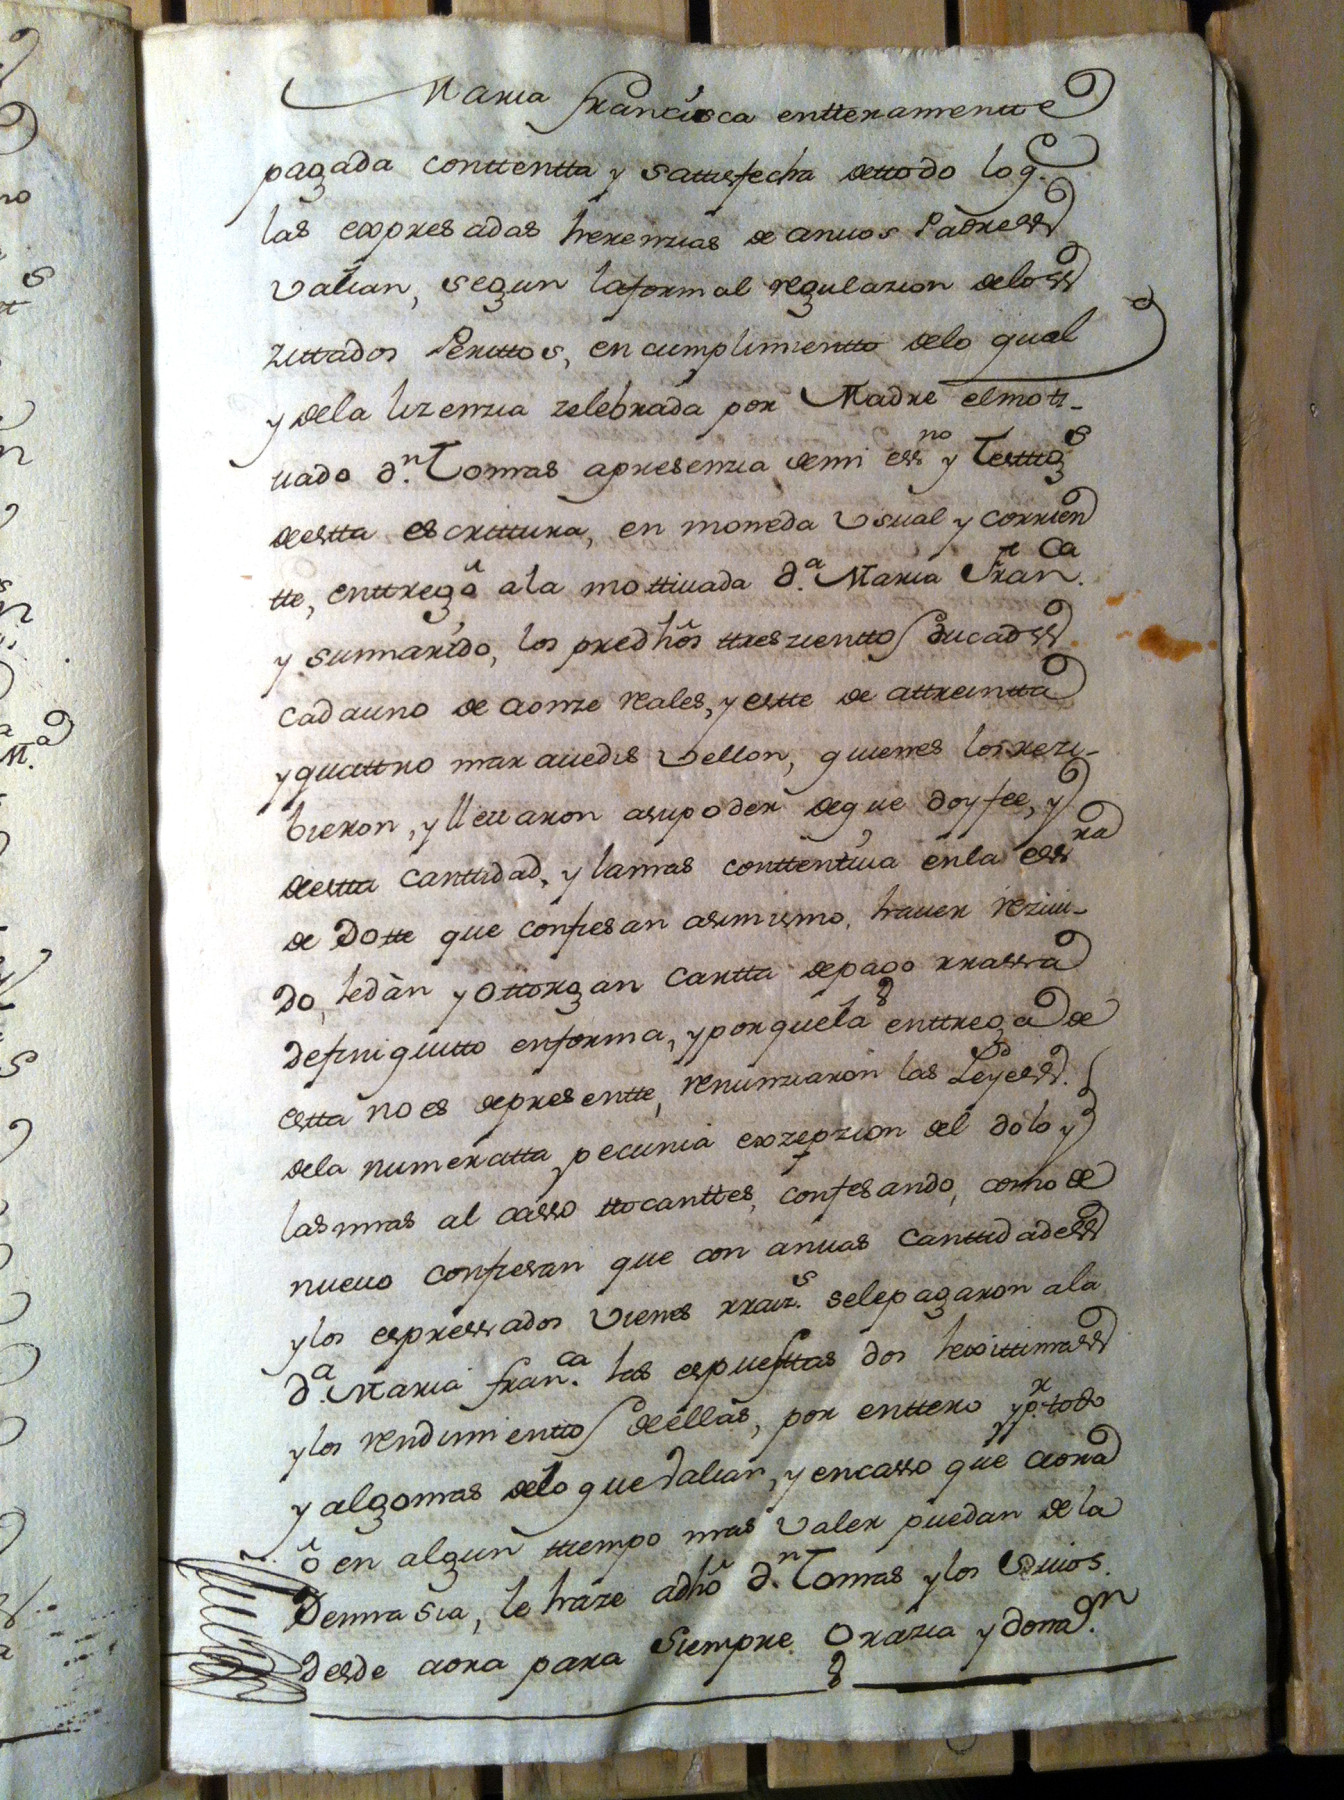 Maria Francisca entteramentte
pagada conttentta y sattisfecha dettodo lo q.e
las expresadas herenzias de anvos Padress
valian, segun laformal regulazion deloss
zittados Perittos, en cumplimientto delo qual
y dela lizenzia zelebrada por Madre elmoti-
uado d.n Tomas apresenzia demi ess.no y Testtig.s
deestta escrittura, en moneda vsual y corrien
tte, enttregô ala mottiuada d.a Maria Fran.ca
y sumarido, los predhôs ttreszienttos ducadss
cadauno de aonze reales, y estte de attreintta
yquattro marauedis vellon, quienes losrezi-
bieron, y lleuaron asupoder deque doyfee, y
deestta canttidad, y lamas conttentiua enla essra
de Dotte que confiesan asimismo, hauer reziui-
do, ledàn y ottorgan cartta depago rrassa
definiquitto enforma, yporquela enttrega de
estta no es depresentte, renunziaron las Leyess.
dela numeratta pecunia exzepzion del dolo y
lasmas al casso ttocanttes, confesando, como de
nueuo confiesan que con anvas canttidadess
ylos espressados vienes rraiz.s selepagaron ala
d.a Maria fran.ca las espuesttas dos lexittimass
ylos rendimienttos deellas, por enttero yp.r todo
y algomas delo que valian, y encasso que aora
ô en algun ttiempo mas valer puedan de la
Demasia, le haze adhô d.n Tomas ylos suios.
desde aora para siempre Grazia y dona.n